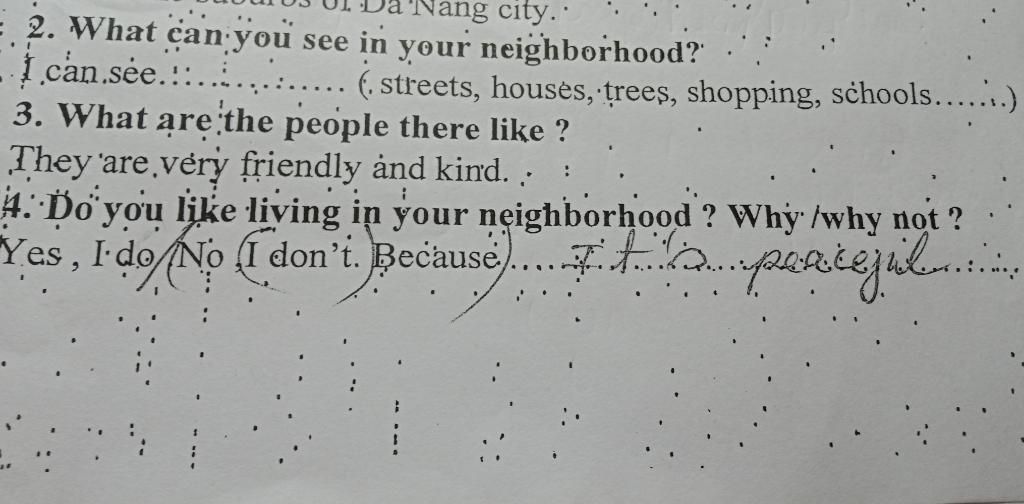 suburbs of Da Nang city.
2. What can you see in your neighborhood?
I can see.................... ( streets, houses, trees, shopping, schools......)
3. What are the people there like ?
They are very friendly and kind.
4. Do you like living in your neighborhood ? Why /why not ?
Yes , I do/(No (I don't.)Because)....It's...peaceful........